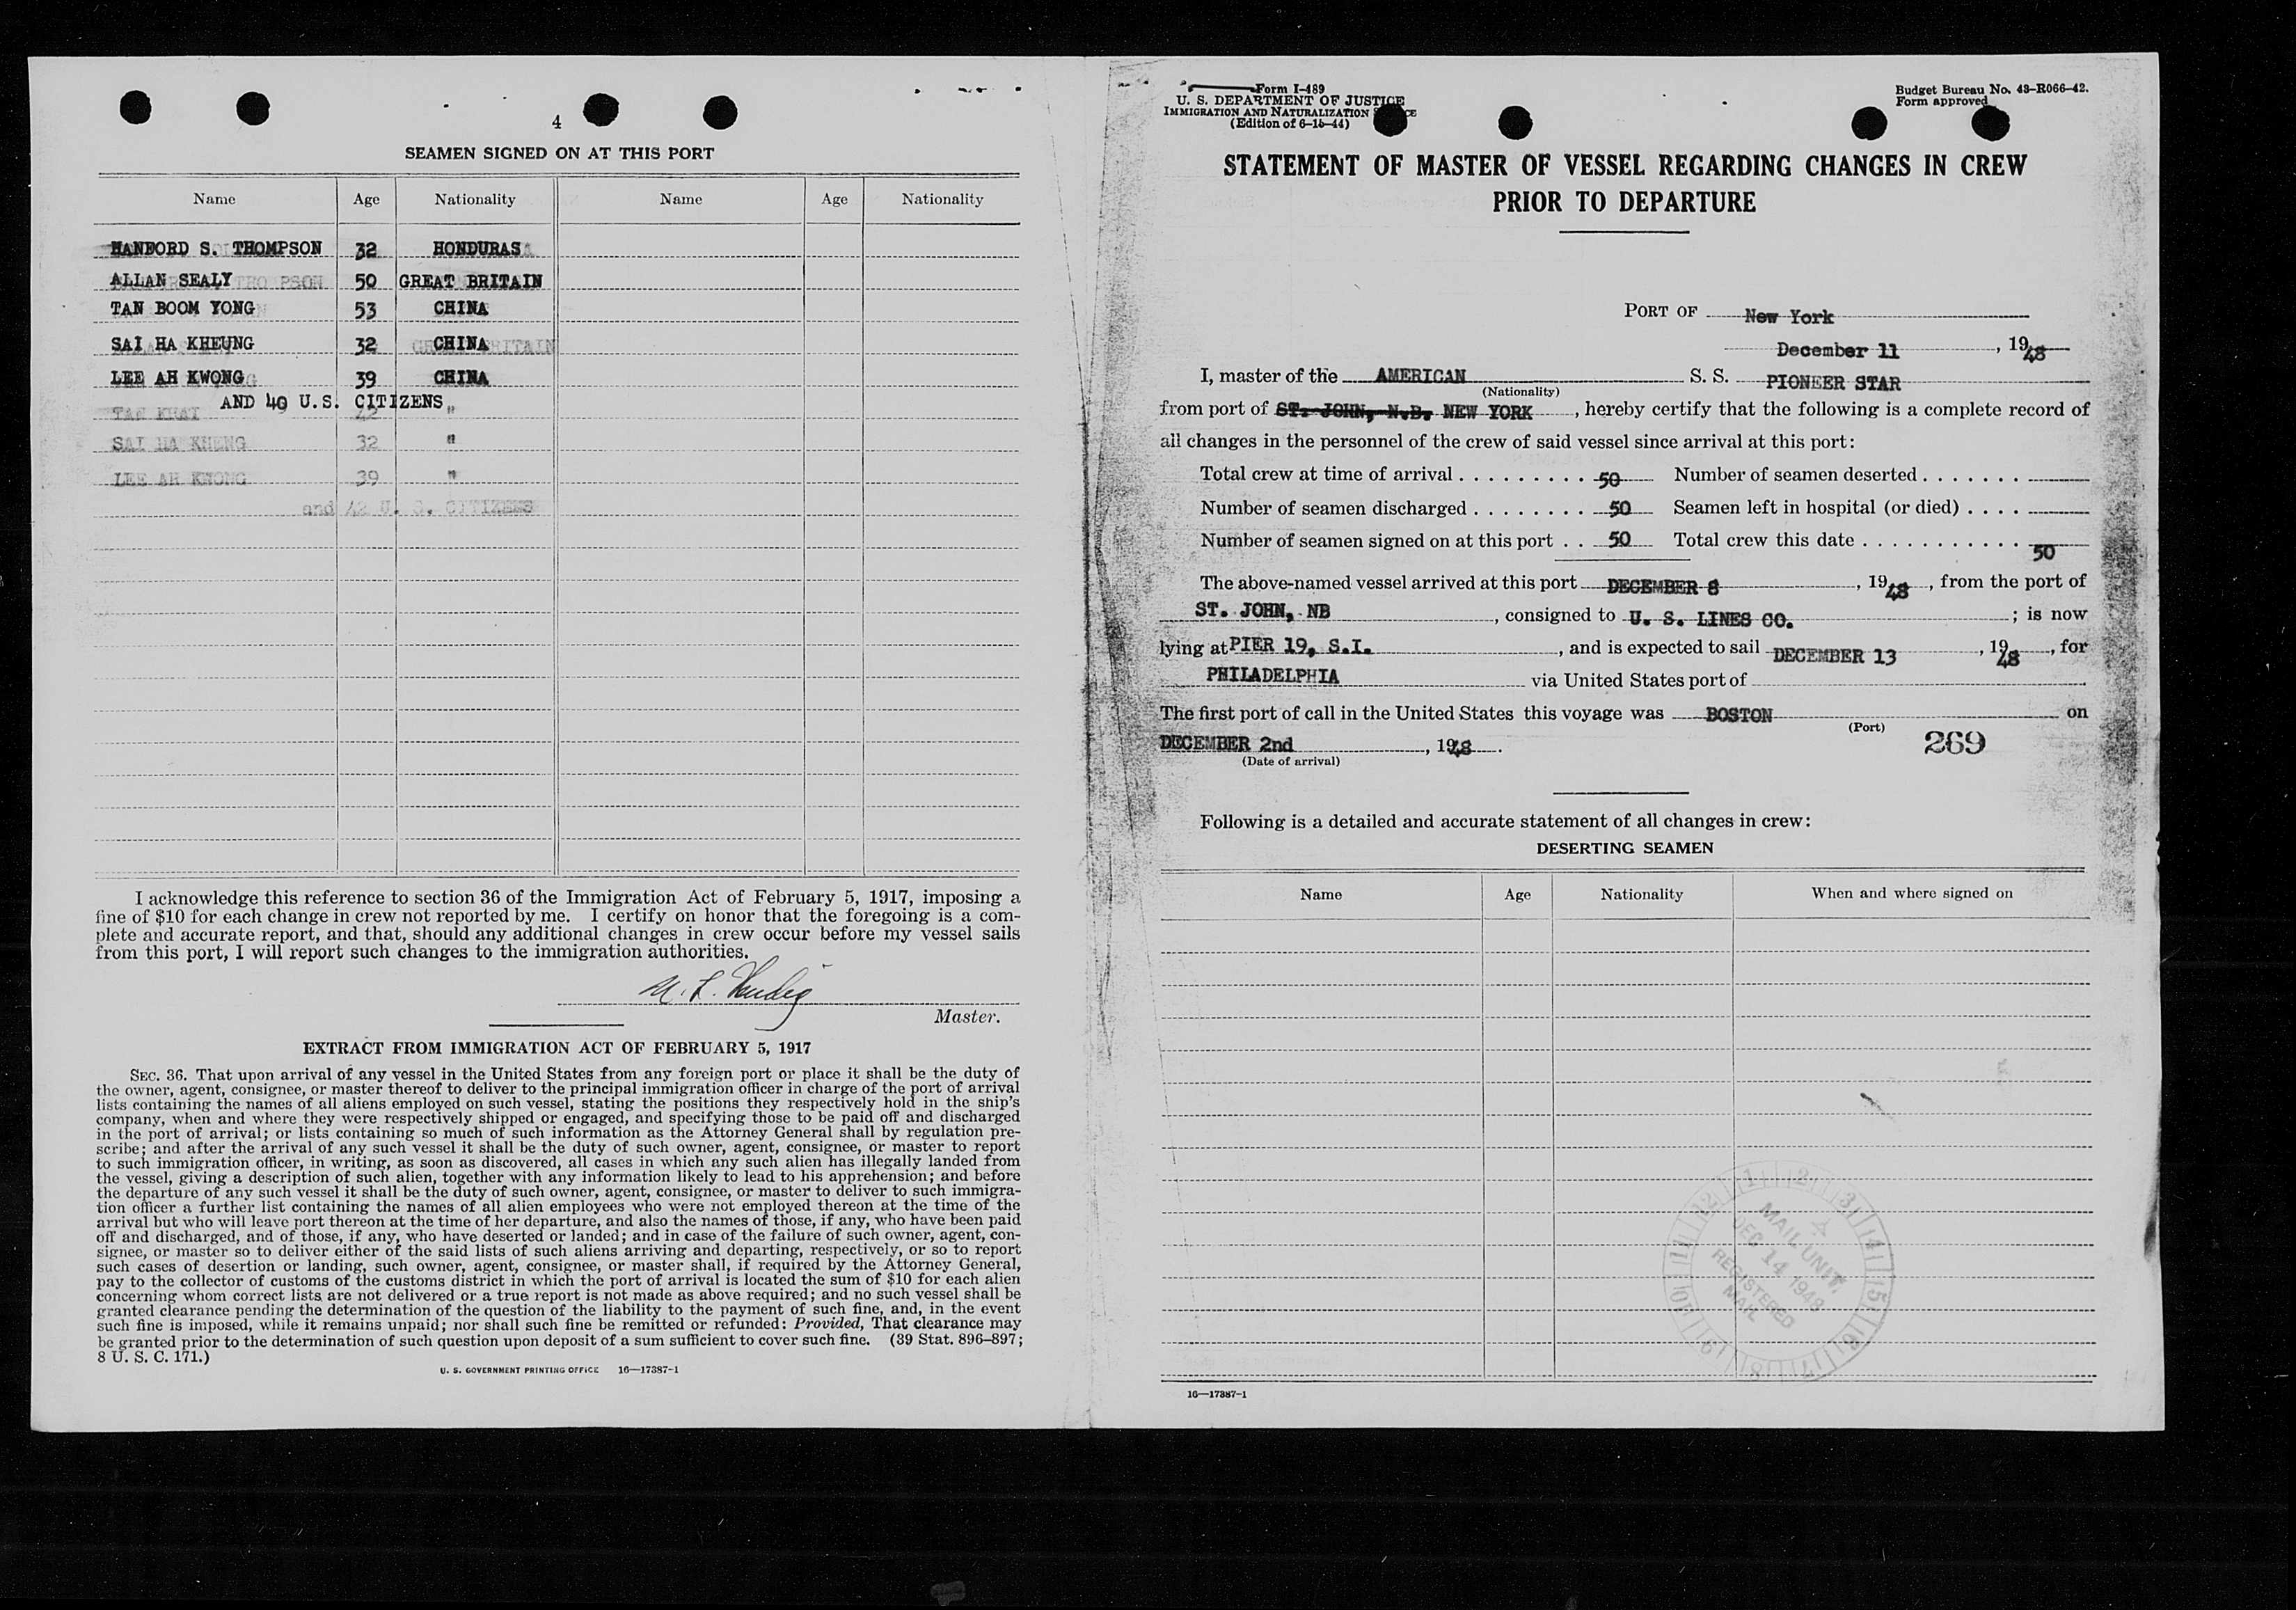 4
SEAMEN SIGNED ON AT THIS PORT
Name Age Nationality Name Age Nationality
S. THOMPSON 32 HONDURAS
ALLAN SEALY 50 GREAT BRITAIN
TAN BOOM YONG 53 CHINA
SAI HA KHEUNG 32 CHINA
LEE AH KWONG 39 CHINA
AND 40 U.S. CITIZENS
TAN KHAI "
SAI HA KHENG 32 "
LEE AH KWONG 39 "
and 42 U. S. CITIZENS
I acknowledge this reference to section 36 of the Immigration Act of February 5, 1917, imposing a
fine of $10 for each change in crew not reported by me. I certify on honor that the foregoing is a com-
plete and accurate report, and that, should any additional changes in crew occur before my vessel sails
from this port, I will report such changes to the immigration authorities.
Master.
EXTRACT FROM IMMIGRATION ACT OF FEBRUARY 5, 1917
SEC. 36. That upon arrival of any vessel in the United States from any foreign port or place it shall be the duty of
the owner, agent, consignee, or master thereof to deliver to the principal immigration officer in charge of the port of arrival
lists containing the names of all aliens employed on such vessel, stating the positions they respectively hold in the ship's
company, when and where they were respectively shipped or engaged, and specifying those to be paid off and discharged
in the port of arrival; or lists containing so much of such information as the Attorney General shall by regulation pre-
scribe; and after the arrival of any such vessel it shall be the duty of such owner, agent, consignee, or master to report
to such immigration officer, in writing, as soon as discovered, all cases in which any such alien has illegally landed from
the vessel, giving a description of such alien, together with any information likely to lead to his apprehension; and before
the departure of any such vessel it shall be the duty of such owner, agent, consignee, or master to deliver to such immigra-
tion officer a further list containing the names of all alien employees who were not employed thereon at the time of the
arrival but who will leave port thereon at the time of her departure, and also the names of those, if any, who have been paid
off and discharged, and of those, if any, who have deserted or landed; and in case of the failure of such owner, agent, con-
signee, or master so to deliver either of the said lists of such aliens arriving and departing, respectively, or so to report
such cases of desertion or landing, such owner, agent, consignee, or master shall, if required by the Attorney General,
pay to the collector of customs of the customs district in which the port of arrival is located the sum of $10 for each alien
concerning whom correct lists are not delivered or a true report is not made as above required; and no such vessel shall be
granted clearance pending the determination of the question of the liability to the payment of such fine, and, in the event
such fine is imposed, while it remains unpaid; nor shall such fine be remitted or refunded: Provided, That clearance may
be granted prior to the determination of such question upon deposit of a sum sufficient to cover such fine. (39 Stat. 896–897;
8 U. S. C. 171.)
U. S. GOVERNMENT PRINTING OFFICE 16—17387-1
Form I-489
U. S. DEPARTMENT OF JUSTICE
IMMIGRATION AND NATURALIZATION
(Edition of 6-15-44)
Budget Bureau No. 43-R066-42.
Form approved
STATEMENT OF MASTER OF VESSEL REGARDING CHANGES IN CREW
PRIOR TO DEPARTURE
PORT OF New York
December 11, 1948
I, master of the AMERICAN S. S. PIONEER STAR
(Nationality)
from port of ST. JOHN, N.B. NEW YORK, hereby certify that the following is a complete record of
all changes in the personnel of the crew of said vessel since arrival at this port:
Total crew at time of arrival . . . . . . . . . 50 Number of seamen deserted . . . . . . .
Number of seamen discharged . . . . . . . . 50 Seamen left in hospital (or died) . . . .
Number of seamen signed on at this port . . 50 Total crew this date . . . . . . . . . . . 50
The above-named vessel arrived at this port DECEMBER 8, 1948, from the port of
ST. JOHN, NB, consigned to U. S. LINES CO.; is now
lying at PIER 19, S.I., and is expected to sail DECEMBER 13, 1948, for
PHILADELPHIA via United States port of
The first port of call in the United States this voyage was BOSTON on
(Port)
DECEMBER 2nd, 1948.
(Date of arrival)
269
Following is a detailed and accurate statement of all changes in crew:
DESERTING SEAMEN
Name Age Nationality When and where signed on
MAIL UNIT
DEC 14 1948
REGISTERED
MAIL
16—17387-1